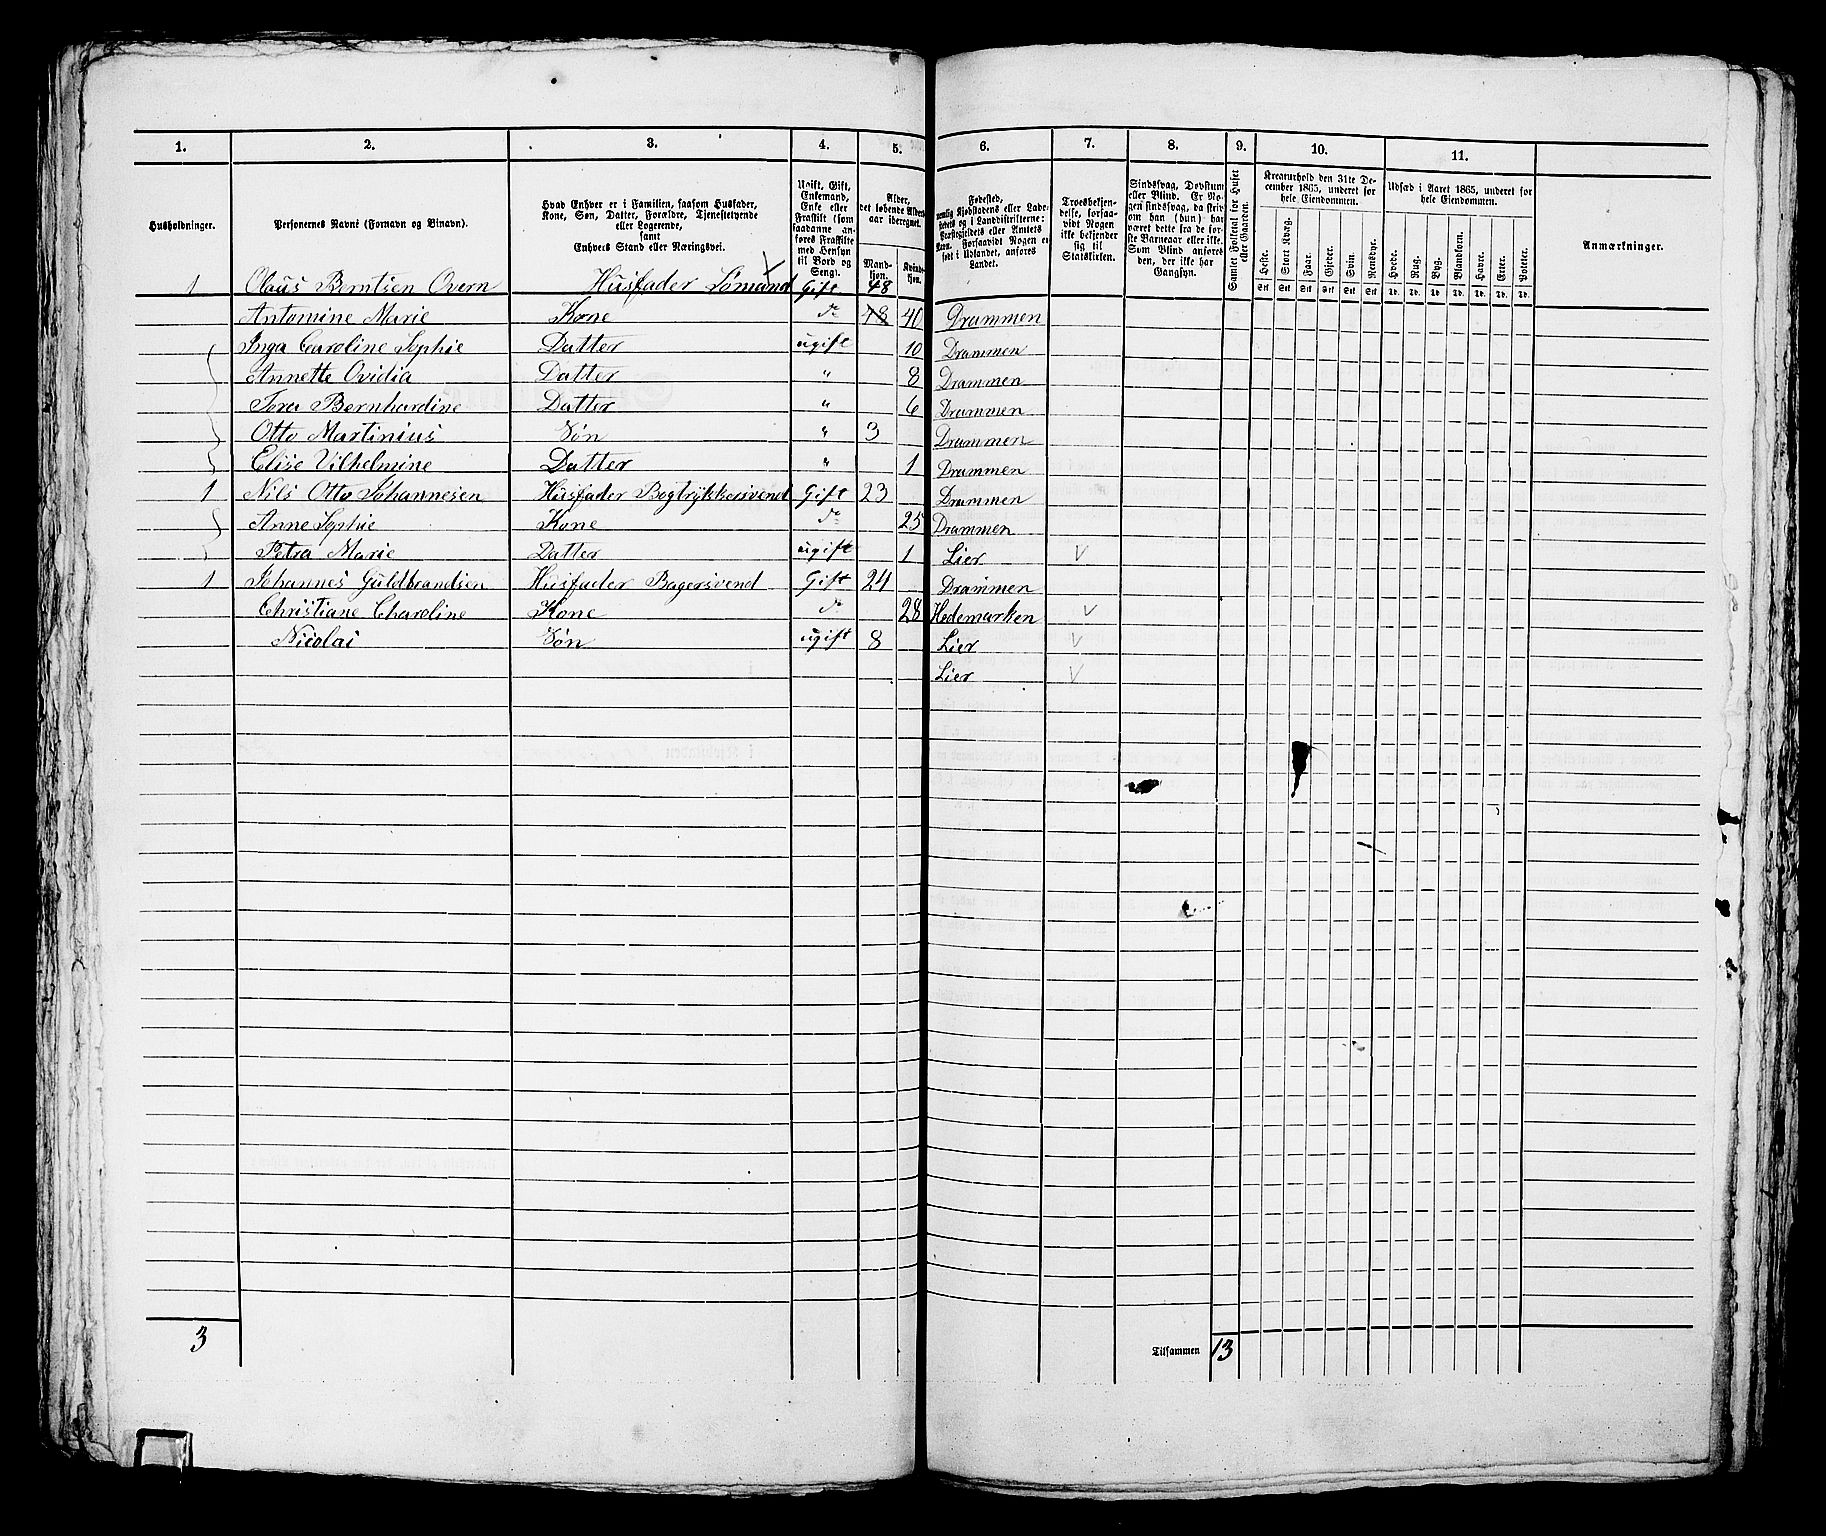 1. 2. 3. 4. 5. 6. 7. 8. 9. 10. 11.
Husholdninger.
Personernes Navne (Fornavn og Binavn).
Hvad Enhver er i Familien, saasom Husfader,
Kone, Søn, Datter, Forældre, Tjenestetyende
eller Logerende,
samt
Enhvers Stand eller Næringsvei.
Ugift, Gift,
Enkemand,
Enke eller
Fraskilt (som
saadanne an-
føres Fraskilte
med Hensyn
til Bord og
Seng).
Alder,
det løbende Alders-
aar iberegnet.
Mand-
kjøn.
Kvinde-
kjøn.
Fødested,
nemlig Kjøbstadens eller Lade-
stedets og i Landdistrikterne:
Præstegjeldets eller Amtets
Navn. Forsaavidt Nogen er
født i Udlandet, anføres
Landet.
Troesbekjen-
delse, forsaa-
vidt Nogen
ikke bekjender
sig til
Statskirken.
Sindssvag, Døvstum
eller Blind. Er No-
gen sindssvag, da skriv
om han (hun) har
været dette fra de før-
ste Barneaar eller ikke.
Som Blind anføres
den, der ikke har
Gangsyn.
Samlet Folketal for Huset
eller Gaarden.
Kreaturhold den 31te De-
cember 1865, underet for
hele Eiendommen.
Heste. Stort Kvæg. Faar. Gjeder. Svin. Rensdyr.
Stk Stk Stk Stk Stk Stk
Udsæd i Aaret 1865, underet for
hele Eiendommen.
Hvede. Rug. Byg. Blandkorn. Havre. Erter. Poteter.
Td. Td. Td. Td. Td. Td. Td.
Anmærkninger.
1 Olaus Berntsen Overn Husfader Sømand Gift 48
Antomine Marie Kone do 48 40 Drammen
Inga Caroline Sophie Datter ugift 10 Drammen
Annette Ovidia Datter " 8 Drammen
Tora Bernhardine Datter " 6 Drammen
Otto Martinius Søn " 3 Drammen
Elise Vilhelmine Datter " 1 Drammen
1 Nils Otto Johannesen Husfader Bogtrykkersvend Gift 23 Drammen
Anne Sophie Kone do 25 Drammen
Petra Marie Datter ugift 1 Lier
1 Johannes Guldbrandsen Husfader Bagersvend Gift 24 Drammen
Christiane Charoline Kone do 28 Hedemarken
Nicolai Søn ugift 8 Lier
Lier
3 Tilsammen 13